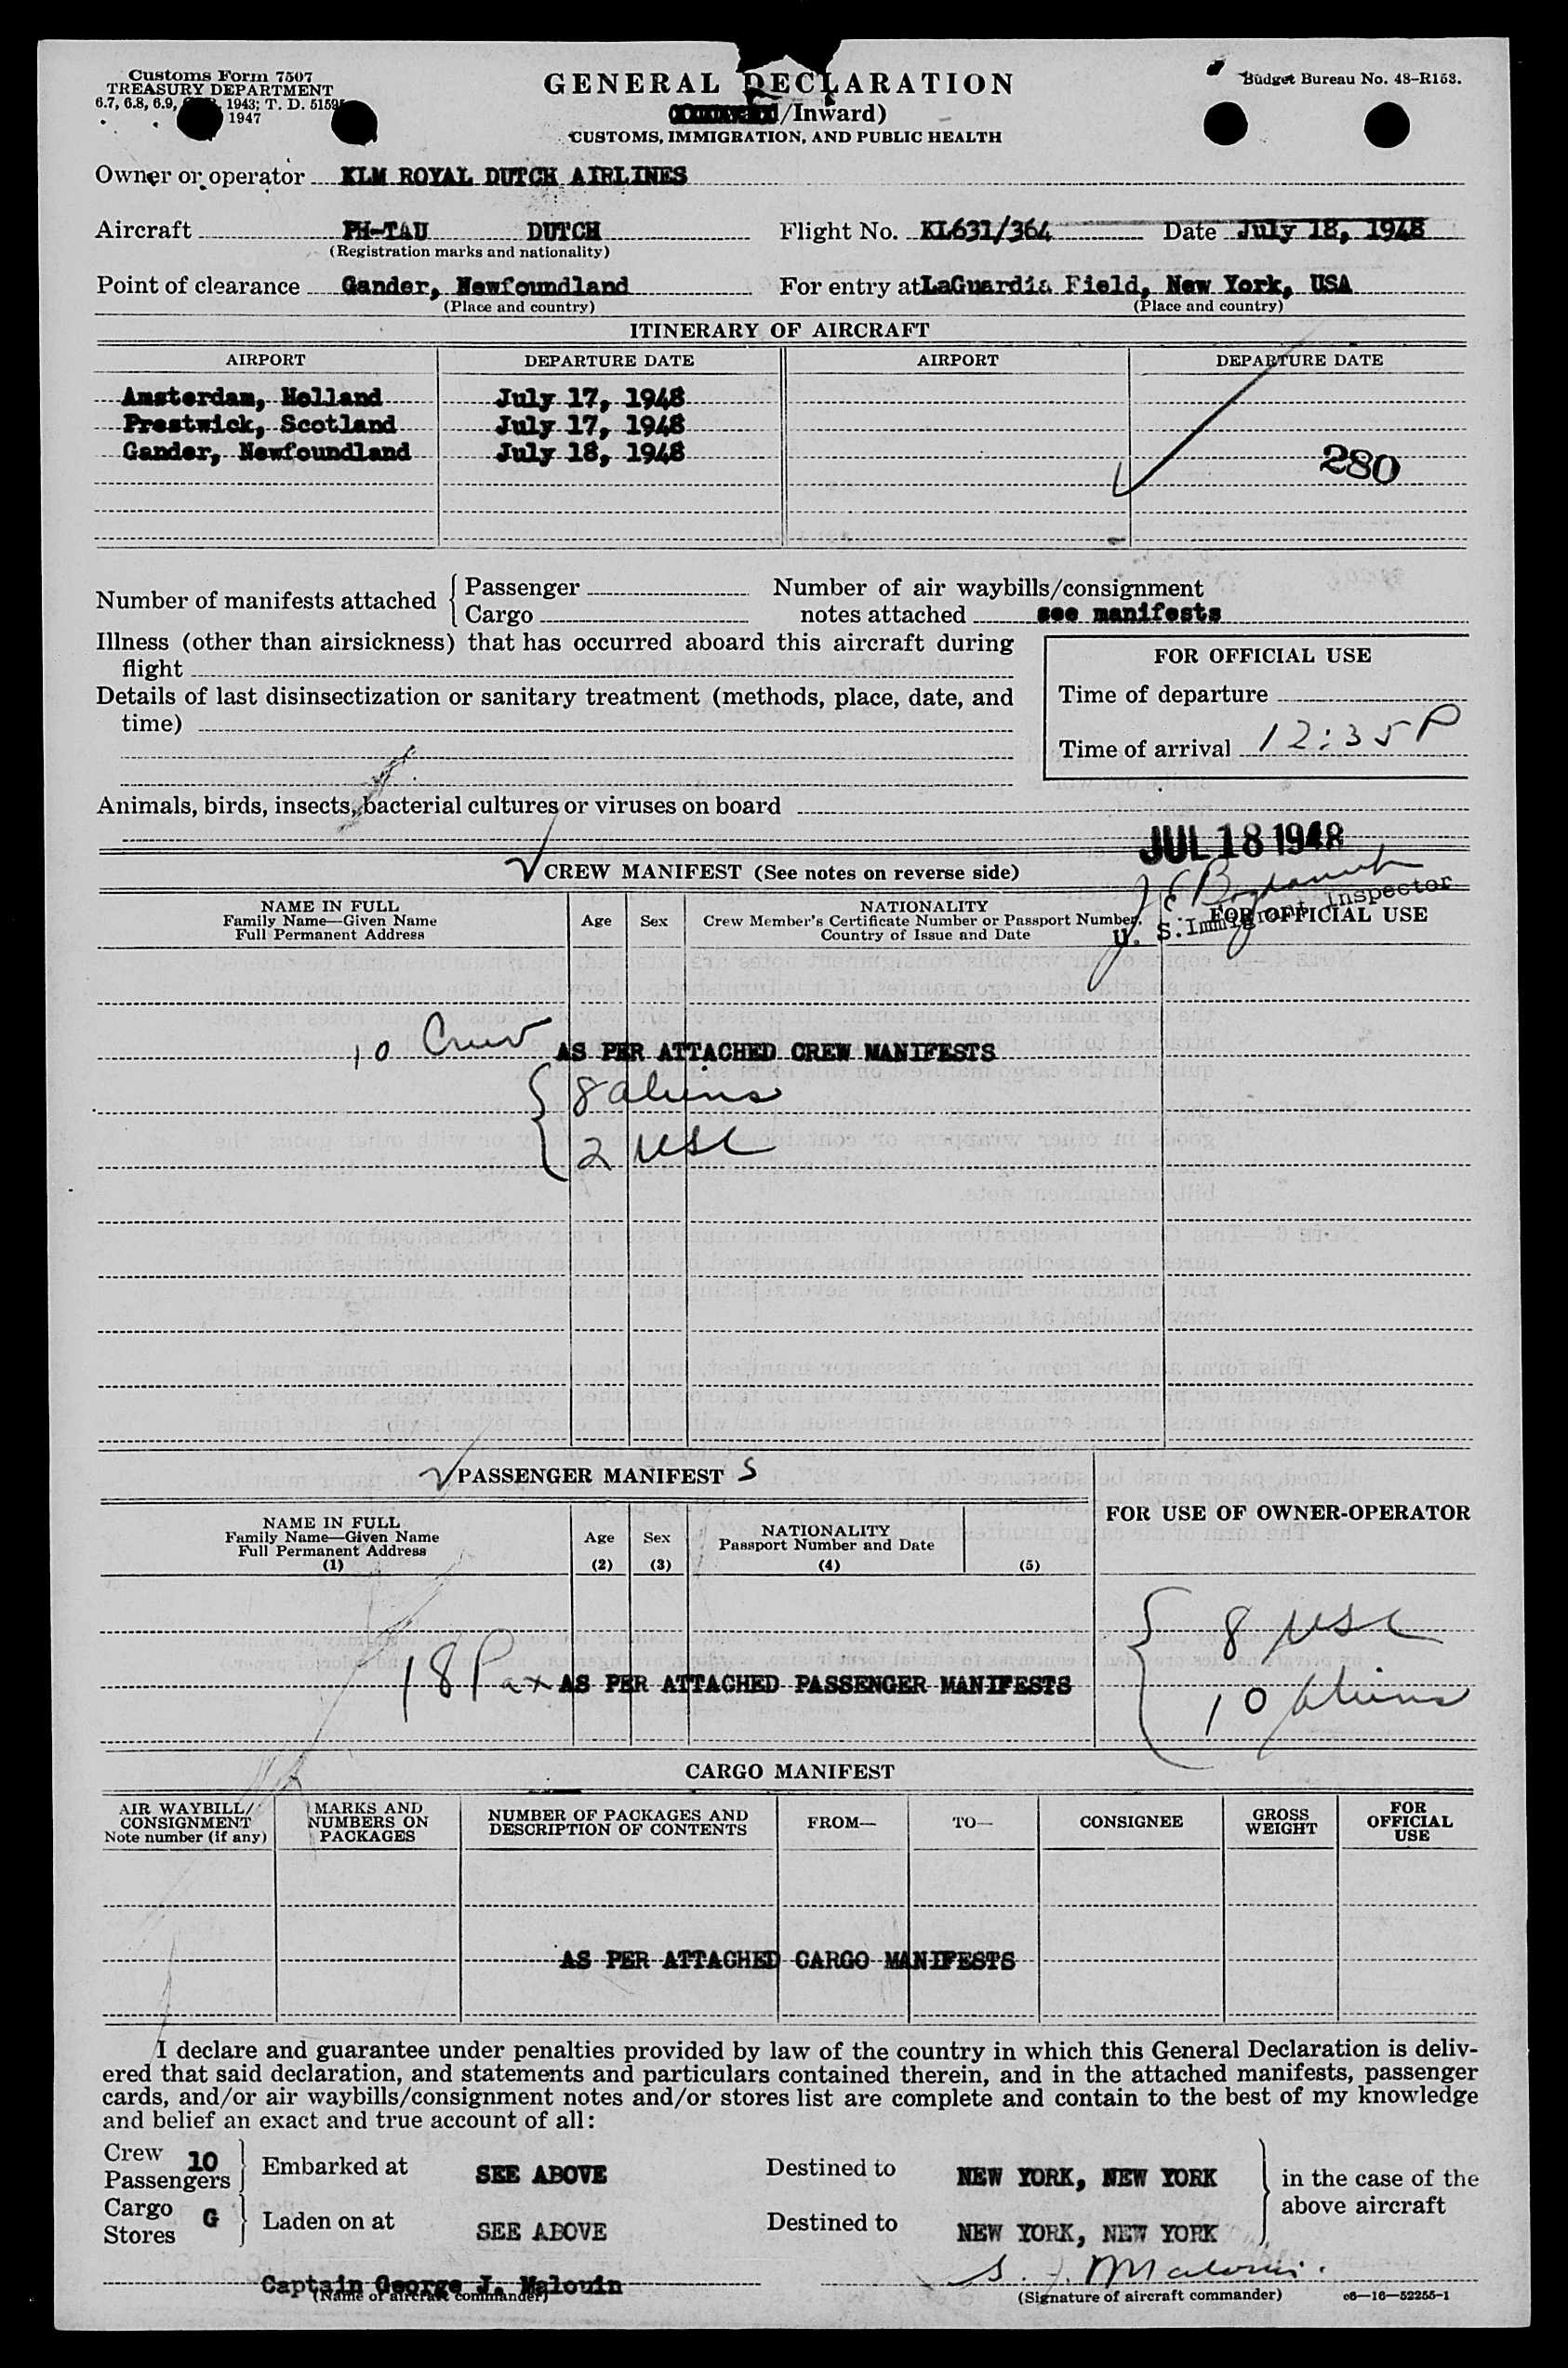 Customs Form 7507
TREASURY DEPARTMENT
6.7, 6.8, 6.9, 1943; T. D. 5159
1947
GENERAL DECLARATION
/Inward)
CUSTOMS, IMMIGRATION, AND PUBLIC HEALTH
Budget Bureau No. 48-R153.
Owner or operator KLM ROYAL DUTCH AIRLINES
Aircraft PH-TAU DUTCH Flight No. KL631/364 Date July 18, 1948
(Registration marks and nationality)
Point of clearance Gander, Newfoundland For entry at LaGuardia Field, New York, USA
(Place and country) (Place and country)
ITINERARY OF AIRCRAFT
AIRPORT DEPARTURE DATE AIRPORT DEPARTURE DATE
Amsterdam, Holland July 17, 1948
Prestwick, Scotland July 17, 1948
Gander, Newfoundland July 18, 1948 280
Number of manifests attached { Passenger
Cargo
Number of air waybills/consignment
notes attached see manifests
Illness (other than airsickness) that has occurred aboard this aircraft during
flight
Details of last disinsectization or sanitary treatment (methods, place, date, and
time)
FOR OFFICIAL USE
Time of departure
Time of arrival 12:35 P
Animals, birds, insects, bacterial cultures or viruses on board
JUL 18 1948
U. S. Immigrant Inspector
CREW MANIFEST (See notes on reverse side)
NAME IN FULL
Family Name—Given Name
Full Permanent Address
Age
Sex
NATIONALITY
Crew Member's Certificate Number or Passport Number,
Country of Issue and Date
FOR OFFICIAL USE
10 Crew AS PER ATTACHED CREW MANIFESTS
8 aliens
2 USC
PASSENGER MANIFEST S
FOR USE OF OWNER-OPERATOR
NAME IN FULL
Family Name—Given Name
Full Permanent Address
(1)
Age
(2)
Sex
(3)
NATIONALITY
Passport Number and Date
(4)
(5)
8 USC
18 Pax AS PER ATTACHED PASSENGER MANIFESTS
10 Aliens
CARGO MANIFEST
AIR WAYBILL/
CONSIGNMENT
Note number (if any)
MARKS AND
NUMBERS ON
PACKAGES
NUMBER OF PACKAGES AND
DESCRIPTION OF CONTENTS
FROM—
TO—
CONSIGNEE
GROSS
WEIGHT
FOR
OFFICIAL
USE
AS PER ATTACHED CARGO MANIFESTS
I declare and guarantee under penalties provided by law of the country in which this General Declaration is deliv-
ered that said declaration, and statements and particulars contained therein, and in the attached manifests, passenger
cards, and/or air waybills/consignment notes and/or stores list are complete and contain to the best of my knowledge
and belief an exact and true account of all:
Crew 10
Passengers
Embarked at SEE ABOVE Destined to NEW YORK, NEW YORK
in the case of the
above aircraft
Cargo G
Stores
Laden on at SEE ABOVE Destined to NEW YORK, NEW YORK
Captain George J. Malouin
(Name of aircraft commander)
(Signature of aircraft commander)
c6—16—52255-1